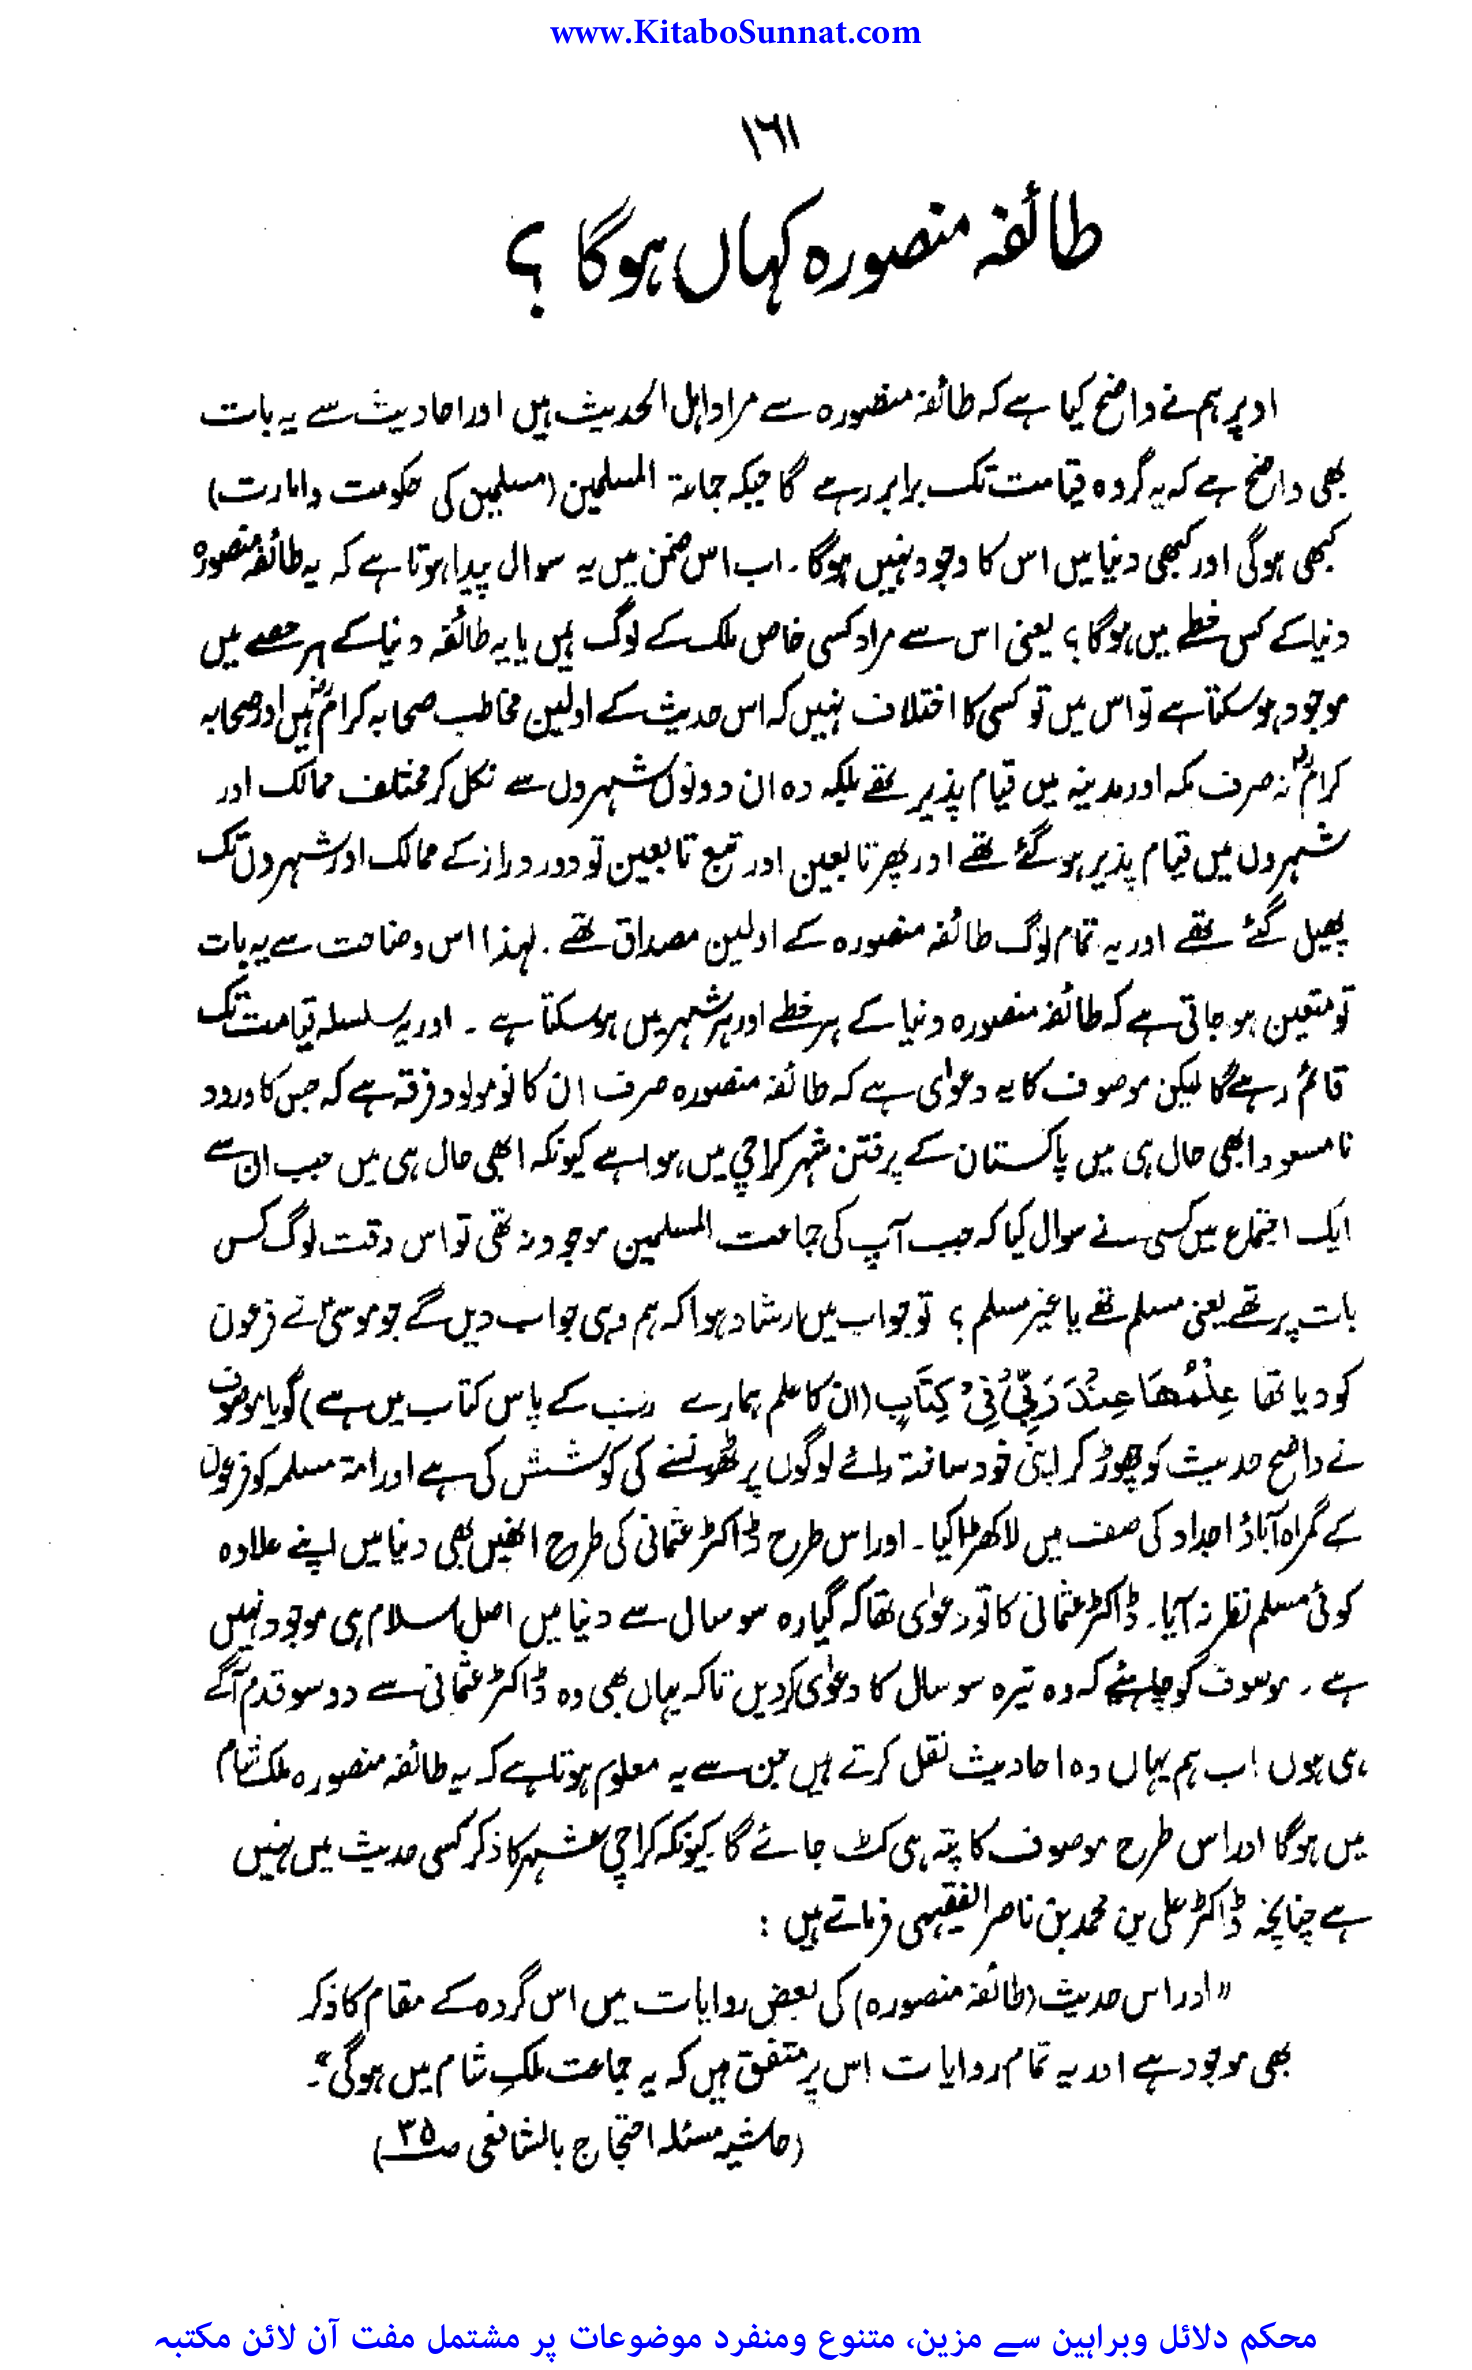 www.KitaboSunnat.com
۱۶۱
طائفہ منصورہ کہاں ہوگا ؟
اوپر ہم نے واضح کیا ہے کہ طائفہ منصورہ سے مراد اہل الحدیث ہیں اور احادیث سے یہ بات
بھی واضح ہے کہ یہ گروہ قیامت تک برابر رہے گا جبکہ جماعۃ المسلمین (مسلمین کی حکومت وامارت)
کبھی ہوگی اور کبھی دنیا میں اس کا وجود نہیں ہوگا ۔ اب اس ضمن میں یہ سوال پیدا ہوتا ہے کہ یہ طائفہ منصورہ
دنیا کے کس خطے میں ہوگا ؟ یعنی اس سے مراد کسی خاص ملک کے لوگ ہیں یا یہ طائفہ دنیا کے ہر حصے میں
موجود ہو سکتا ہے تو اس میں تو کسی کا اختلاف نہیں کہ اس حدیث کے اولین مخاطب صحابہ کرامؓ ہیں اور صحابہ
کرامؓ نہ صرف مکہ اور مدینہ میں قیام پذیر تھے بلکہ وہ ان دونوں شہروں سے نکل کر مختلف ممالک اور
شہروں میں قیام پذیر ہو گئے تھے اور پھر تابعین اور تبع تابعین تو دور دراز کے ممالک اور شہروں تک
پھیل گئے تھے اور یہ تمام لوگ طائفہ منصورہ کے اولین مصداق تھے ۔ لہذا اس وضاحت سے یہ بات
تو متعین ہو جاتی ہے کہ طائفہ منصورہ دنیا کے ہر خطے اور ہر شہر میں ہو سکتا ہے ۔ اور یہ سلسلہ قیامت تک
قائم رہے گا لیکن موصوف کا یہ دعوٰی ہے کہ طائفہ منصورہ صرف ان کا نومولود فرقہ ہے کہ جس کا ورود
نا مسعود ابھی حال ہی میں پاکستان کے پرفتن شہر کراچی میں ہوا ہے کیونکہ ابھی حال ہی میں جب ان سے
ایک اجتماع میں کسی نے سوال کیا کہ جب آپ کی جماعت المسلمین موجود نہ تھی تو اس وقت لوگ کس
بات پر تھے یعنی مسلم تھے یا غیر مسلم ؟ تو جواب میں ارشاد ہوا کہ ہم وہی جواب دیں گے جو موسیٰؑ نے فرعون
کو دیا تھا عِلْمُهَا عِنْدَ رَبِّيْ فِيْ كِتَابٍ (ان کا علم ہمارے رب کے پاس کتاب میں ہے) گویا موصوف
نے واضح حدیث کو چھوڑ کر اپنی خود ساختہ رائے لوگوں پر ٹھونسنے کی کوشش کی ہے اور امۃ مسلمہ کو فرعون
کے گمراہ آباؤ اجداد کی صف میں لا کھڑا کیا ۔ اور اس طرح ڈاکٹر عثمانی کی طرح انھیں بھی دنیا میں اپنے علاوہ
کوئی مسلم نظر نہ آیا ۔ ڈاکٹر عثمانی کا تو دعوٰی تھا کہ گیارہ سو سال سے دنیا میں اصل اسلام ہی موجود نہیں
ہے ۔ موصوف کو چاہئے کہ وہ تیرہ سو سال کا دعوٰی کر دیں تاکہ یہاں بھی وہ ڈاکٹر عثمانی سے دو سو قدم آگے
ہی ہوں اب ہم یہاں وہ احادیث نقل کرتے ہیں جن سے یہ معلوم ہوتا ہے کہ یہ طائفہ منصورہ ملک شام
میں ہوگا اور اس طرح موصوف کا پتہ ہی کٹ جائے گا کیونکہ کراچی شہر کا ذکر کسی حدیث میں نہیں
ہے چنانچہ ڈاکٹر علی بن محمد بن ناصر الفقیہی فرماتے ہیں :
”اور اس حدیث (طائفہ منصورہ) کی بعض روایات میں اس گروہ کے مقام کا ذکر
بھی موجود ہے اور یہ تمام روایات اس پر متفق ہیں کہ یہ جماعت ملکِ شام میں ہوگی“۔
(حاشیہ مسئلہ احتجاج بالشافعی ص۳۵)
محکم دلائل وبراہین سے مزین، متنوع ومنفرد موضوعات پر مشتمل مفت آن لائن مکتبہ